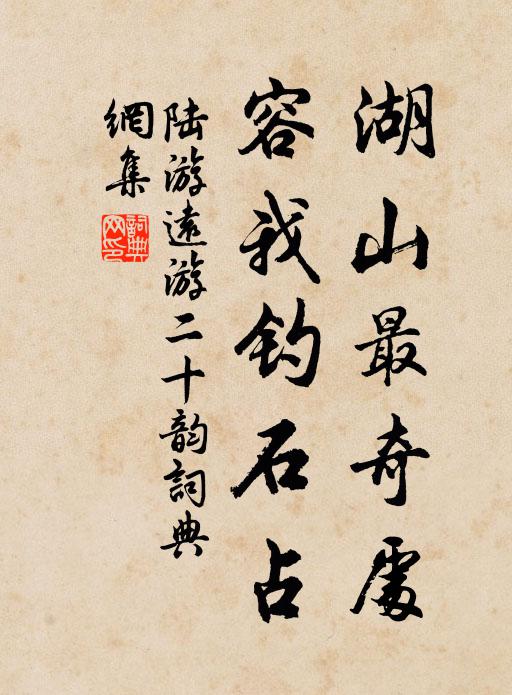 湖山最奇處
容我钓石占
陆游遠游二十韵詞典
網集
詞典網印